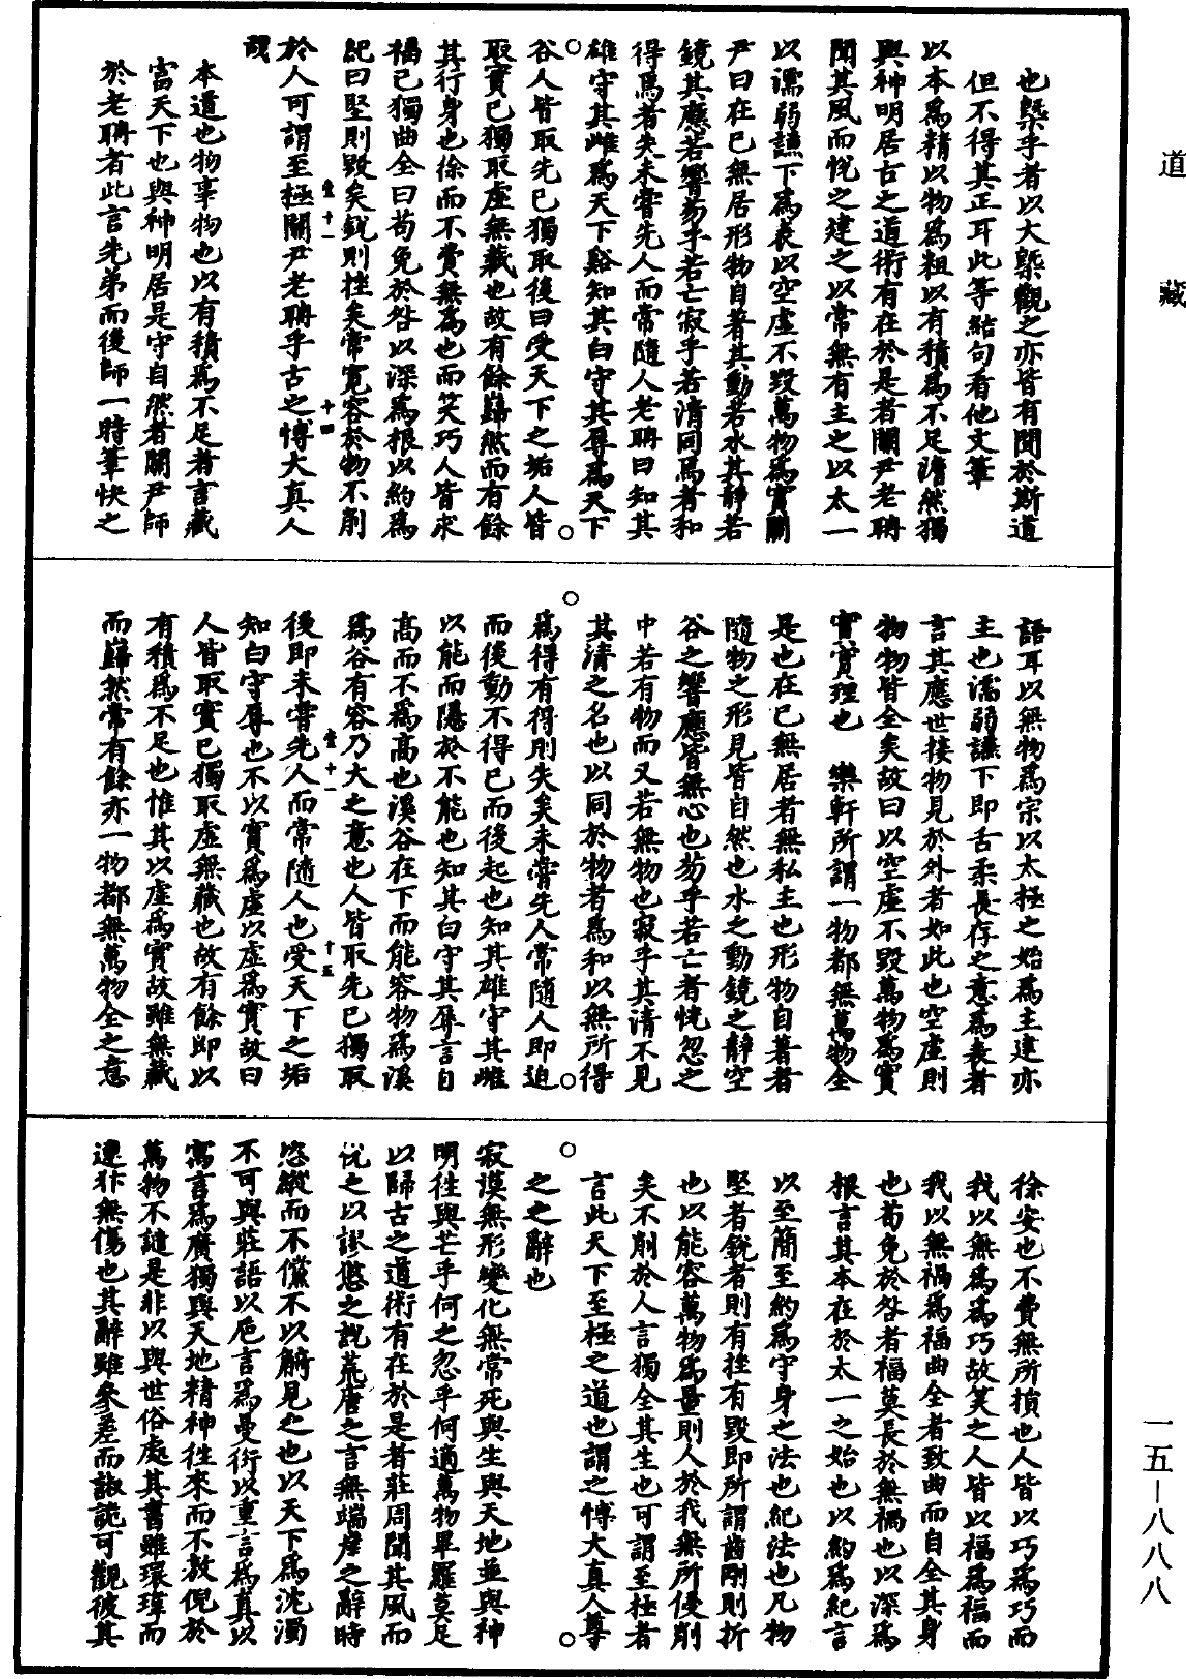 道藏
也槩乎者以大槩觀之亦皆有聞於斯道
但不得其正耳此等結句看他文筆
以本爲精以物爲粗以有積爲不足澹然獨
與神明居古之道術有在於是者關尹老聃
聞其風而悅之建之以常無有主之以太一
以濡弱謙下爲表以空虛不毀萬物爲實關
尹曰在已無居形物自著其動若水其靜若
鏡其應若響芴乎若亡寂乎若清同焉者和
得焉者失未嘗先人而常隨人老聃曰知其
雄守其雌爲天下谿知其白守其辱爲天下
谷人皆取先已獨取後曰受天下之垢人皆
取實已獨取虛無藏也故有餘巋然而有餘
其行身也徐而不費無爲也而笑巧人皆求
福已獨曲全曰苟免於咎以深爲根以約爲
紀曰堅則毀矣銳則挫矣常寬容於物不削
壹十一 十四
於人可謂至極關尹老聃乎古之博大真人
哉
本道也物事物也以有積爲不足者言藏
富天下也與神明居是守自然者關尹師
於老聃者此言先弟而後師一時筆快之
語耳以無物爲宗以太極之始爲主建亦
主也濡弱謙下即舌柔長存之意爲表者
言其應世接物見於外者如此也空虛則
物物皆全矣故曰以空虛不毀萬物爲實
實實理也 樂軒所謂一物都無萬物全
是也在已無居者無私主也形物自著者
隨物之形見皆自然也水之動鏡之靜空
谷之響應皆無心也芴乎若亡者恍忽之
中若有物而又若無物也寂乎其清不見
其清之名也以同於物者爲和以無所得
爲得有得則失矣未嘗先人常隨人即迫
而後動不得已而後起也知其雄守其雌
以能而隱於不能也知其白守其辱言自
高而不爲高也溪谷在下而能容物爲溪
爲谷有容乃大之意也人皆取先已獨取
壹十一 十五
後即未嘗先人而常隨人也受天下之垢
知白守辱也不以實爲虛以虛爲實故曰
人皆取實已獨取虛無藏也故有餘即以
有積爲不足也惟其以虛爲實故雖無藏
而巋然常有餘亦一物都無萬物全之意
徐安也不費無所損也人皆以巧爲巧而
我以無爲爲巧故笑之人皆以福爲福而
我以無禍爲福曲全者致曲而自全其身
也苟免於咎者福莫長於無禍也以深爲
根言其本在於太一之始也以約爲紀言
以至簡至約爲守身之法也紀法也凡物
堅者銳者則有挫有毀即所謂齒剛則折
也以能容萬物爲量則人於我無所侵削
矣不削於人言獨全其生也可謂至極者
言此天下至極之道也謂之博大真人尊
之之辭也
寂漠無形變化無常死與生與天地並與神
明往與芒乎何之忽乎何適萬物畢羅莫足
以歸古之道術有在於是者莊周聞其風而
悅之以謬悠之說荒唐之言無端崖之辭時
恣縱而不儻不以觭見之也以天下爲沈濁
不可與莊語以巵言爲曼衍以重言爲真以
寓言爲廣獨與天地精神往來而不敖倪於
萬物不譴是非以與世俗處其書雖瓌瑋而
連犿無傷也其辭雖參差而諔詭可觀彼其
一五—八八八